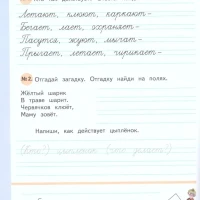 Летают, клюют, каркают-
Бегает, лает, охраняет-
Пасутся, жуют, мычат-
Прыгает, летает, чирикает-
№2. Отгадай загадку. Отгадку найди на полях.
Жёлтый шарик
В траве шарит.
Червячков клюёт,
Маму зовёт.
Напиши, как действует цыплёнок.
(Кто?) цыплёнок (что делает?)